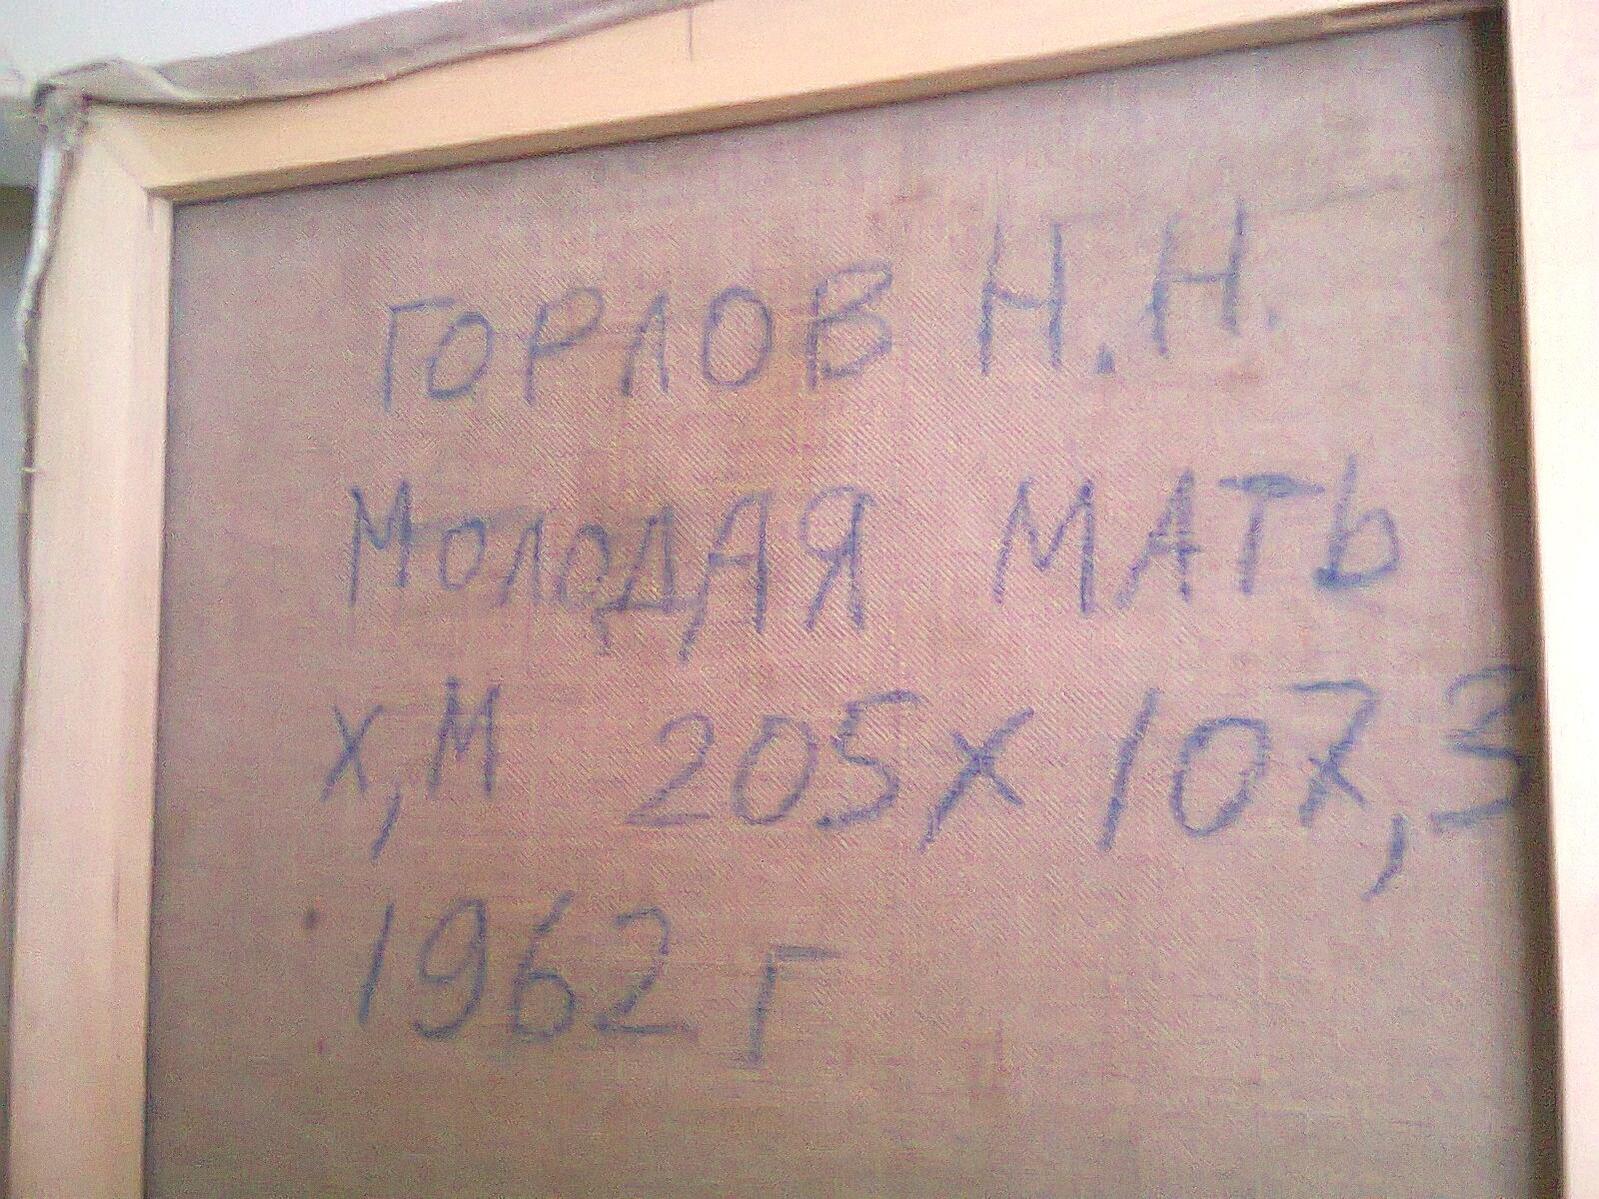 ГОРЛОВ Н.Н.
МОЛОДАЯ МАТЬ
Х,М 205х107,3
1962 г